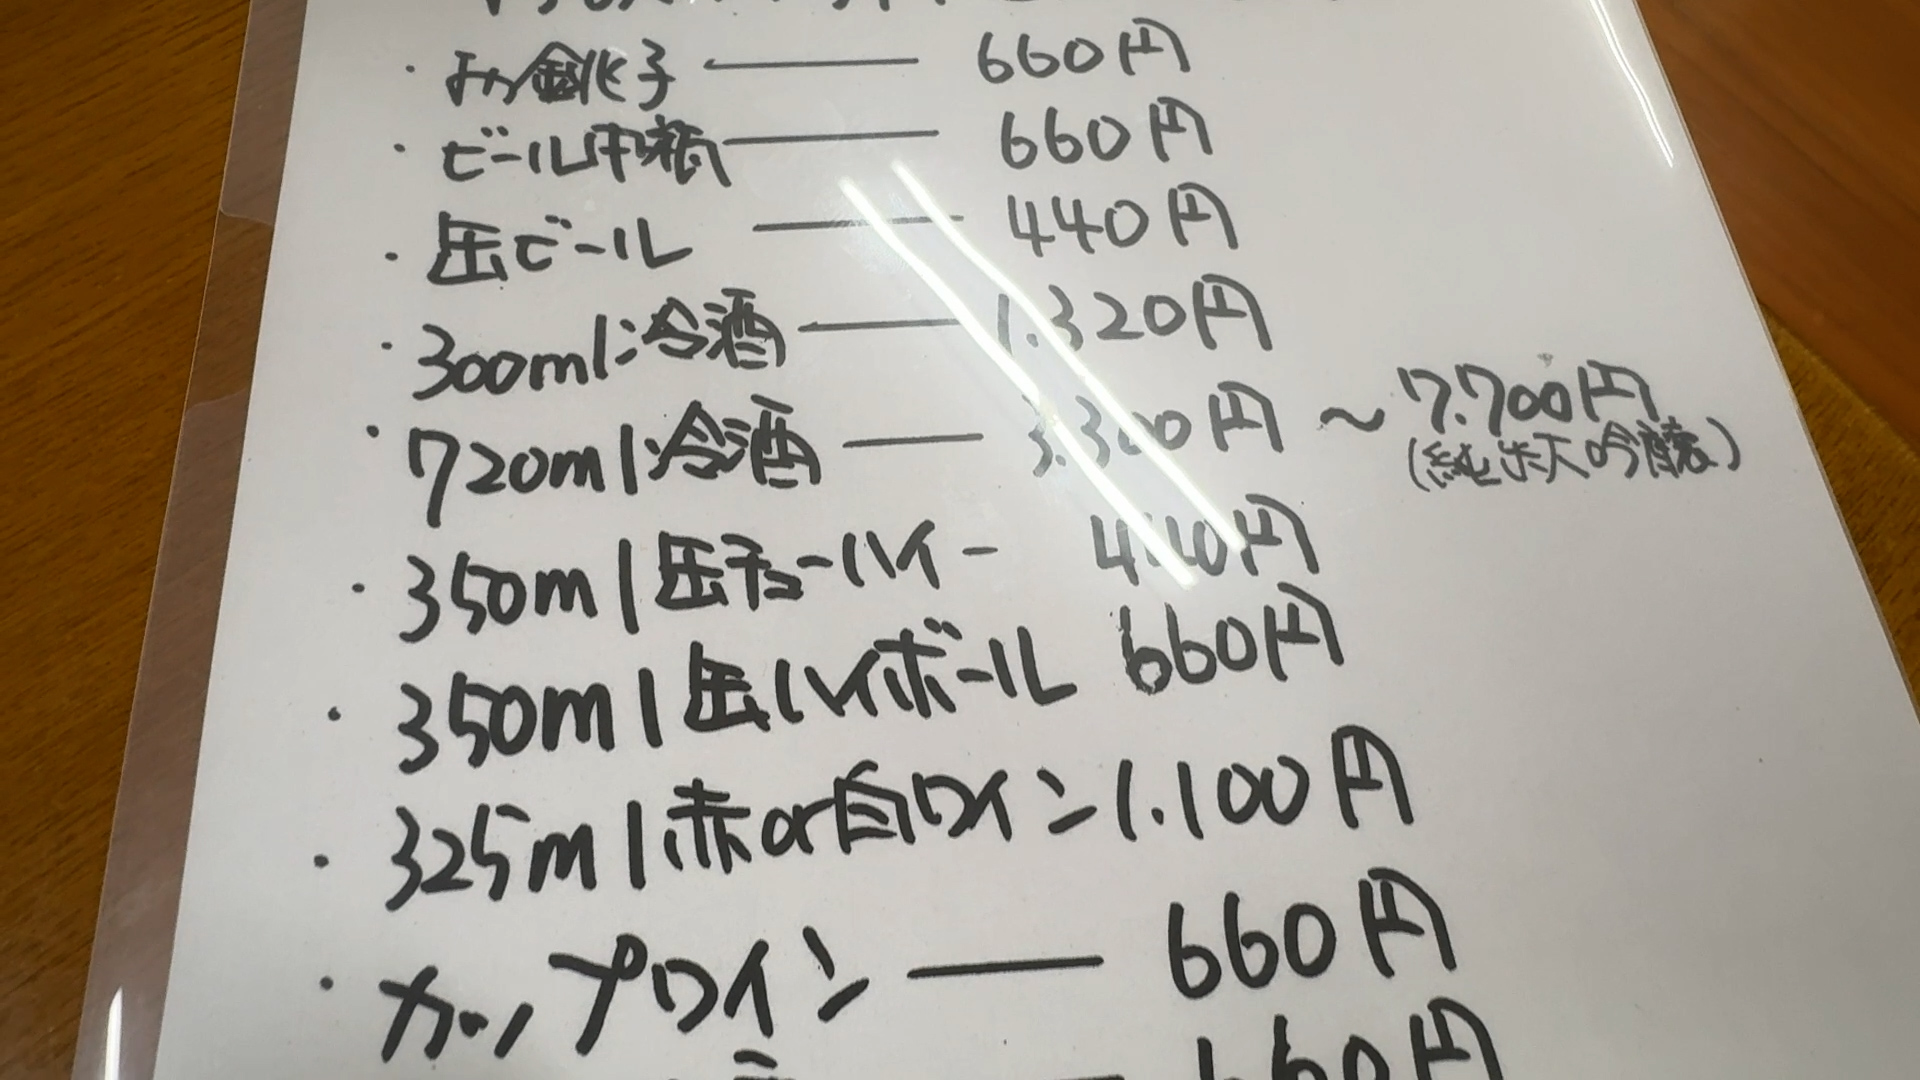 ・お銚子 ── 660円
・ビール中瓶 ── 660円
・缶ビール ── 440円
・300ml:冷酒 ── 1.320円
・720ml:冷酒 ── 3.300円 ～ 7.700円
(純米大吟醸)
・350ml缶チューハイ - 440円
・350ml缶ハイボール 660円
・325ml赤or白ワイン 1.100円
・カップワイン ── 660円
660円